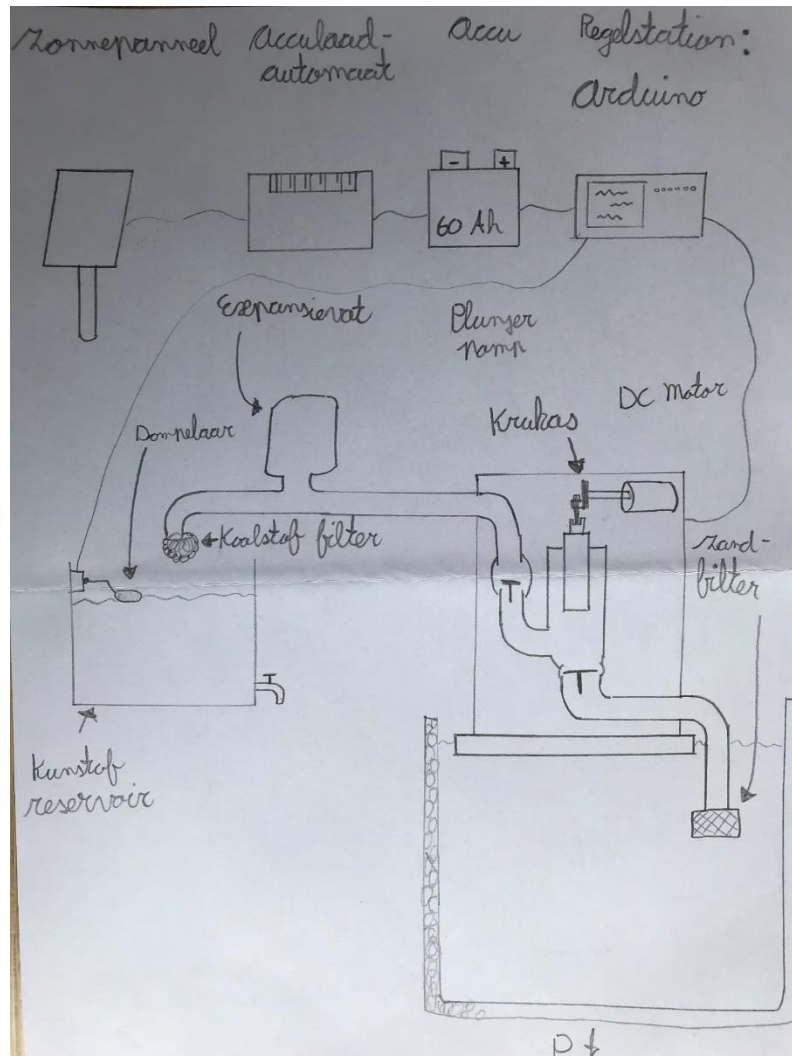 Zonnepanneel
Acculaad-
automaat
Accu
Regelstation:
Arduino
- +
60 Ah
Expansievat
Plunjer
pomp
DC Motor
Krukas
Dompelaar
Koolstof filter
zand-
filter
Kunstof
reservoir